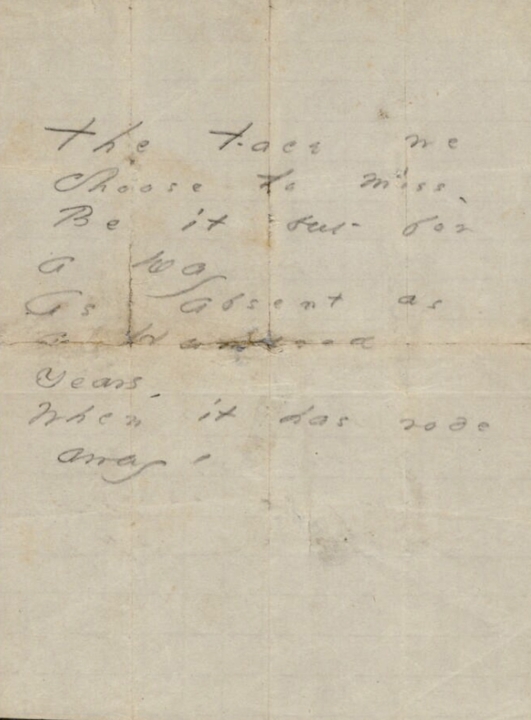 The Face we
choose to miss.
Be it but for
a Day
As absent as
a Hundred
years,
When it has rode
away.